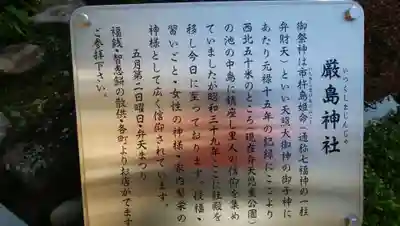 厳島神社
いつくしまじんじゃ
御祭神は市杵島姫命(通称七福神の一柱
弁財天)といい天照大御神の御子神に
あたり元禄十五年の記録にここより
西北五十米のところ(現在弁天児童公園)
の池の中島に鎮座し里人の信仰を集め
ていましたが昭和三十九年ここに社殿を
移し今日に至っております。授福・
習いごと・女性の神様・家内繁栄の
神様として広く信仰されています。
五月第二日曜日・弁天まつり
福銭・智恵餅の散供・各町よりお店がでます
ご参拝下さい。